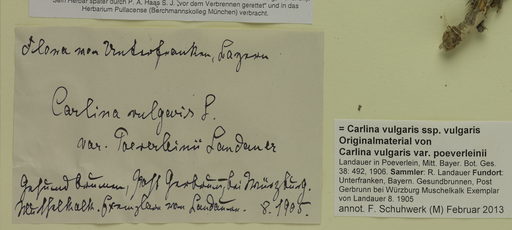 Sein Herbar später durch P. A. Haas S. J. "vor dem Verbrennen gerettet" und in das
Herbarium Pullacense (Berchmannskolleg München) verbracht.
Flora von Unterfranken, Bayern
Carlina vulgaris L.
var. Poeverleinii Landauer
Gesundbrunnen, Post Gerbrunn bei Würzburg.
Muschelkalk. Exemplar von Landauer. 8. 1905.
= Carlina vulgaris ssp. vulgaris
Originalmaterial von
Carlina vulgaris var. poeverleinii
Landauer in Poeverlein, Mitt. Bayer. Bot. Ges.
38: 492, 1906. Sammler: R. Landauer Fundort:
Unterfranken, Bayern. Gesundbrunnen, Post
Gerbrunn bei Würzburg Muschelkalk Exemplar
von Landauer 8. 1905
annot. F. Schuhwerk (M) Februar 2013